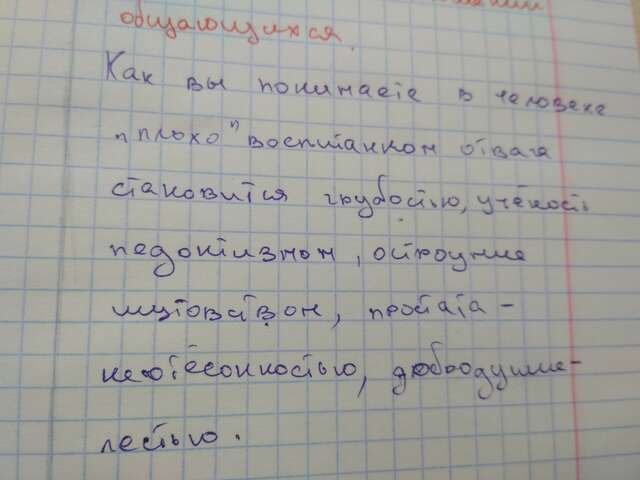 общающихся.
Как вы понимаете в человеке
"плохо" воспитанном отвага
становится грубостью, учёность
педантизмом, остроумие
шутовством, простата -
неотёсонностью, добродушие-
лестью.